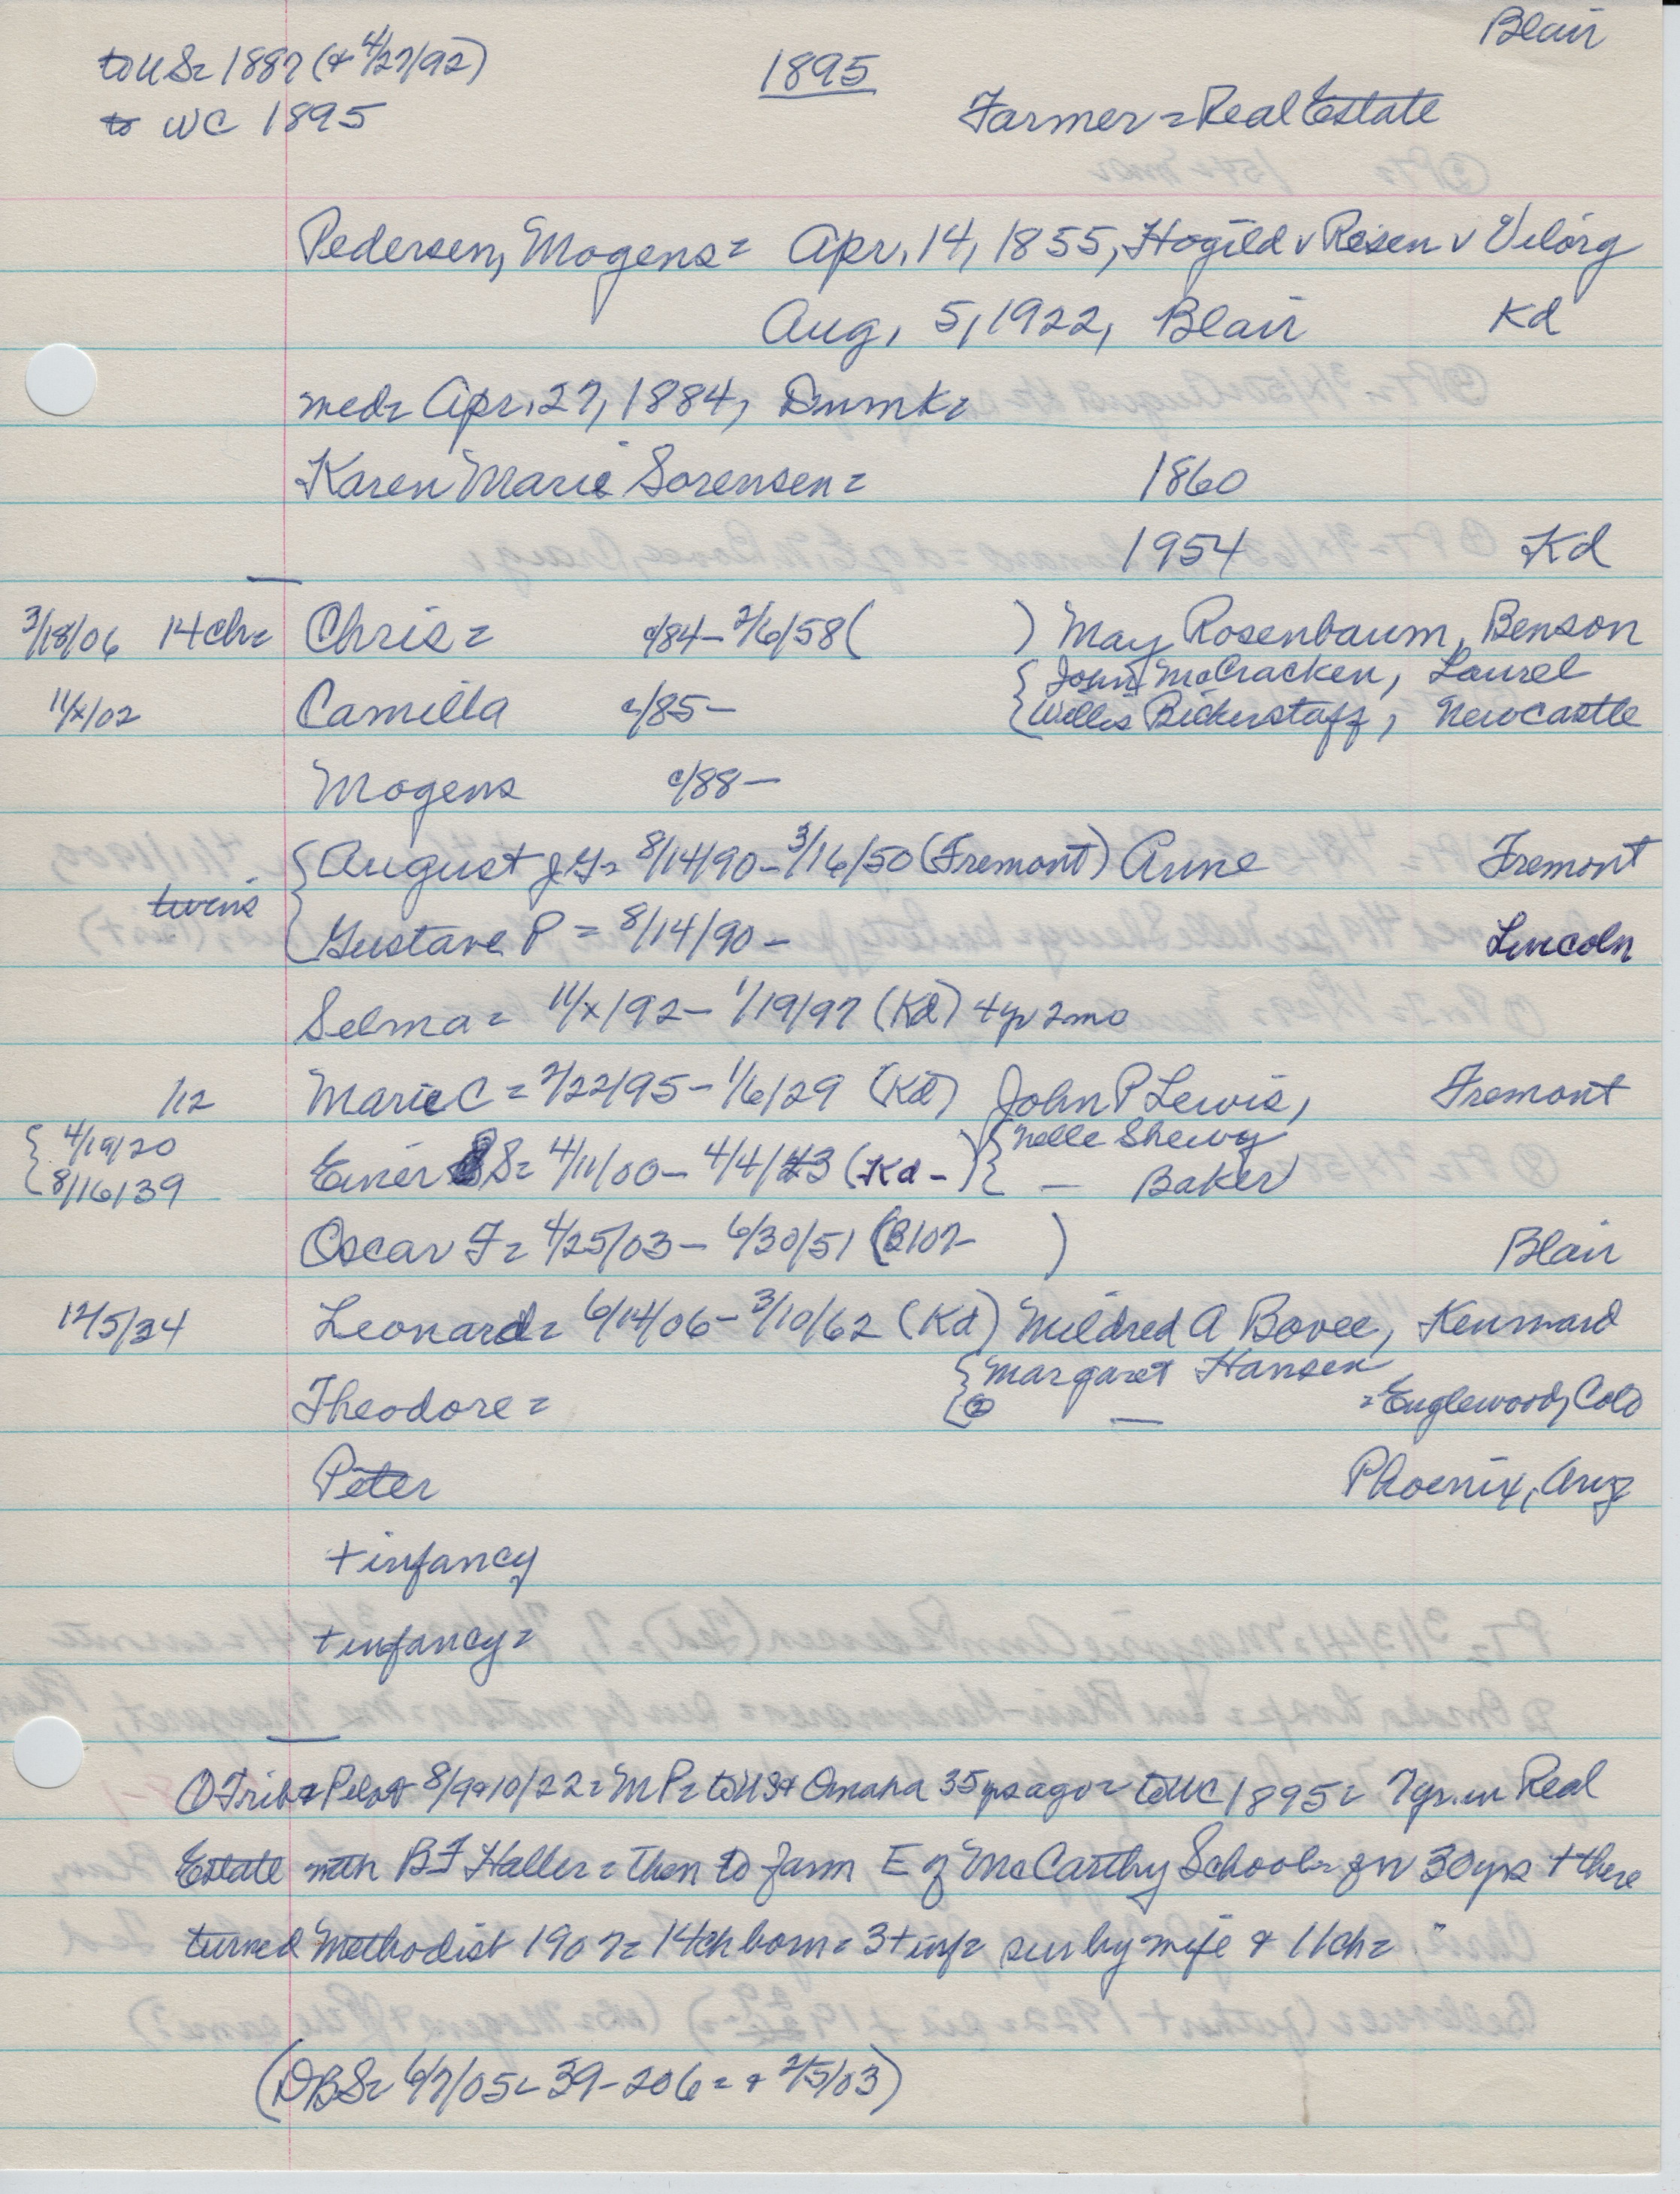 Blair
to US= 1887 (& 4/27/92)
1895
to WC 1895
Farmer = Real Estate
Pedersen, Mogens = Apr. 14, 1855, Hogild v Resen v Viborg
Aug. 5, 1922, Blair Kd
med= Apr. 27, 1884, Dnmk=
Karen Marie Sorensen = 1860
1954 Kd
3/18/06 14ch= Chris = c/84 – 2/6/58 ( ) May Rosenbaum, Benson
{ John McCracken, Laurel
11/x/02 Camilla c/85 – { Willis Bickerstaff, Newcastle
Mogens c/88 –
{ August J G= 8/14/90 – 3/16/50 (Fremont) Anne Fremont
twins
{ Gustave P = 8/14/90 – Lincoln
Selma = 11/x/92 – 1/19/97 (Kd) 4 yr 2 mo
1/12 Marie C = 2/22/95 – 1/6/29 (Kd) John P Lewis, Fremont
{ 4/19/20 { Nelle Shewy
{ 8/16/39 Einer S= 4/11/00 – 4/4/43 (Kd - ) { — Baker
Oscar F= 4/25/03 – 6/30/51 (B107- ) Blair
12/5/34 Leonard= 6/14/06 – 3/10/62 (Kd) Mildred A Bovee, Kennard
{ Margaret Hansen
Theodore = { ② — = Englewood, Colo
Peter Phoenix, Ariz
+ infancy
+ infancy =
① Trib & Pilot 8/9&10/22= M P= to US & Omaha 35 yrs ago = to WC 1895 = 7 yr. in Real
Estate with B F Haller = then to farm E of McCarthy School= for 30 yrs + there
turned Methodist 1907= 14 ch born = 3 + inf= sur by wife & 11 ch =
(DBS= 6/7/05 = 39-206 = & 2/5/03)